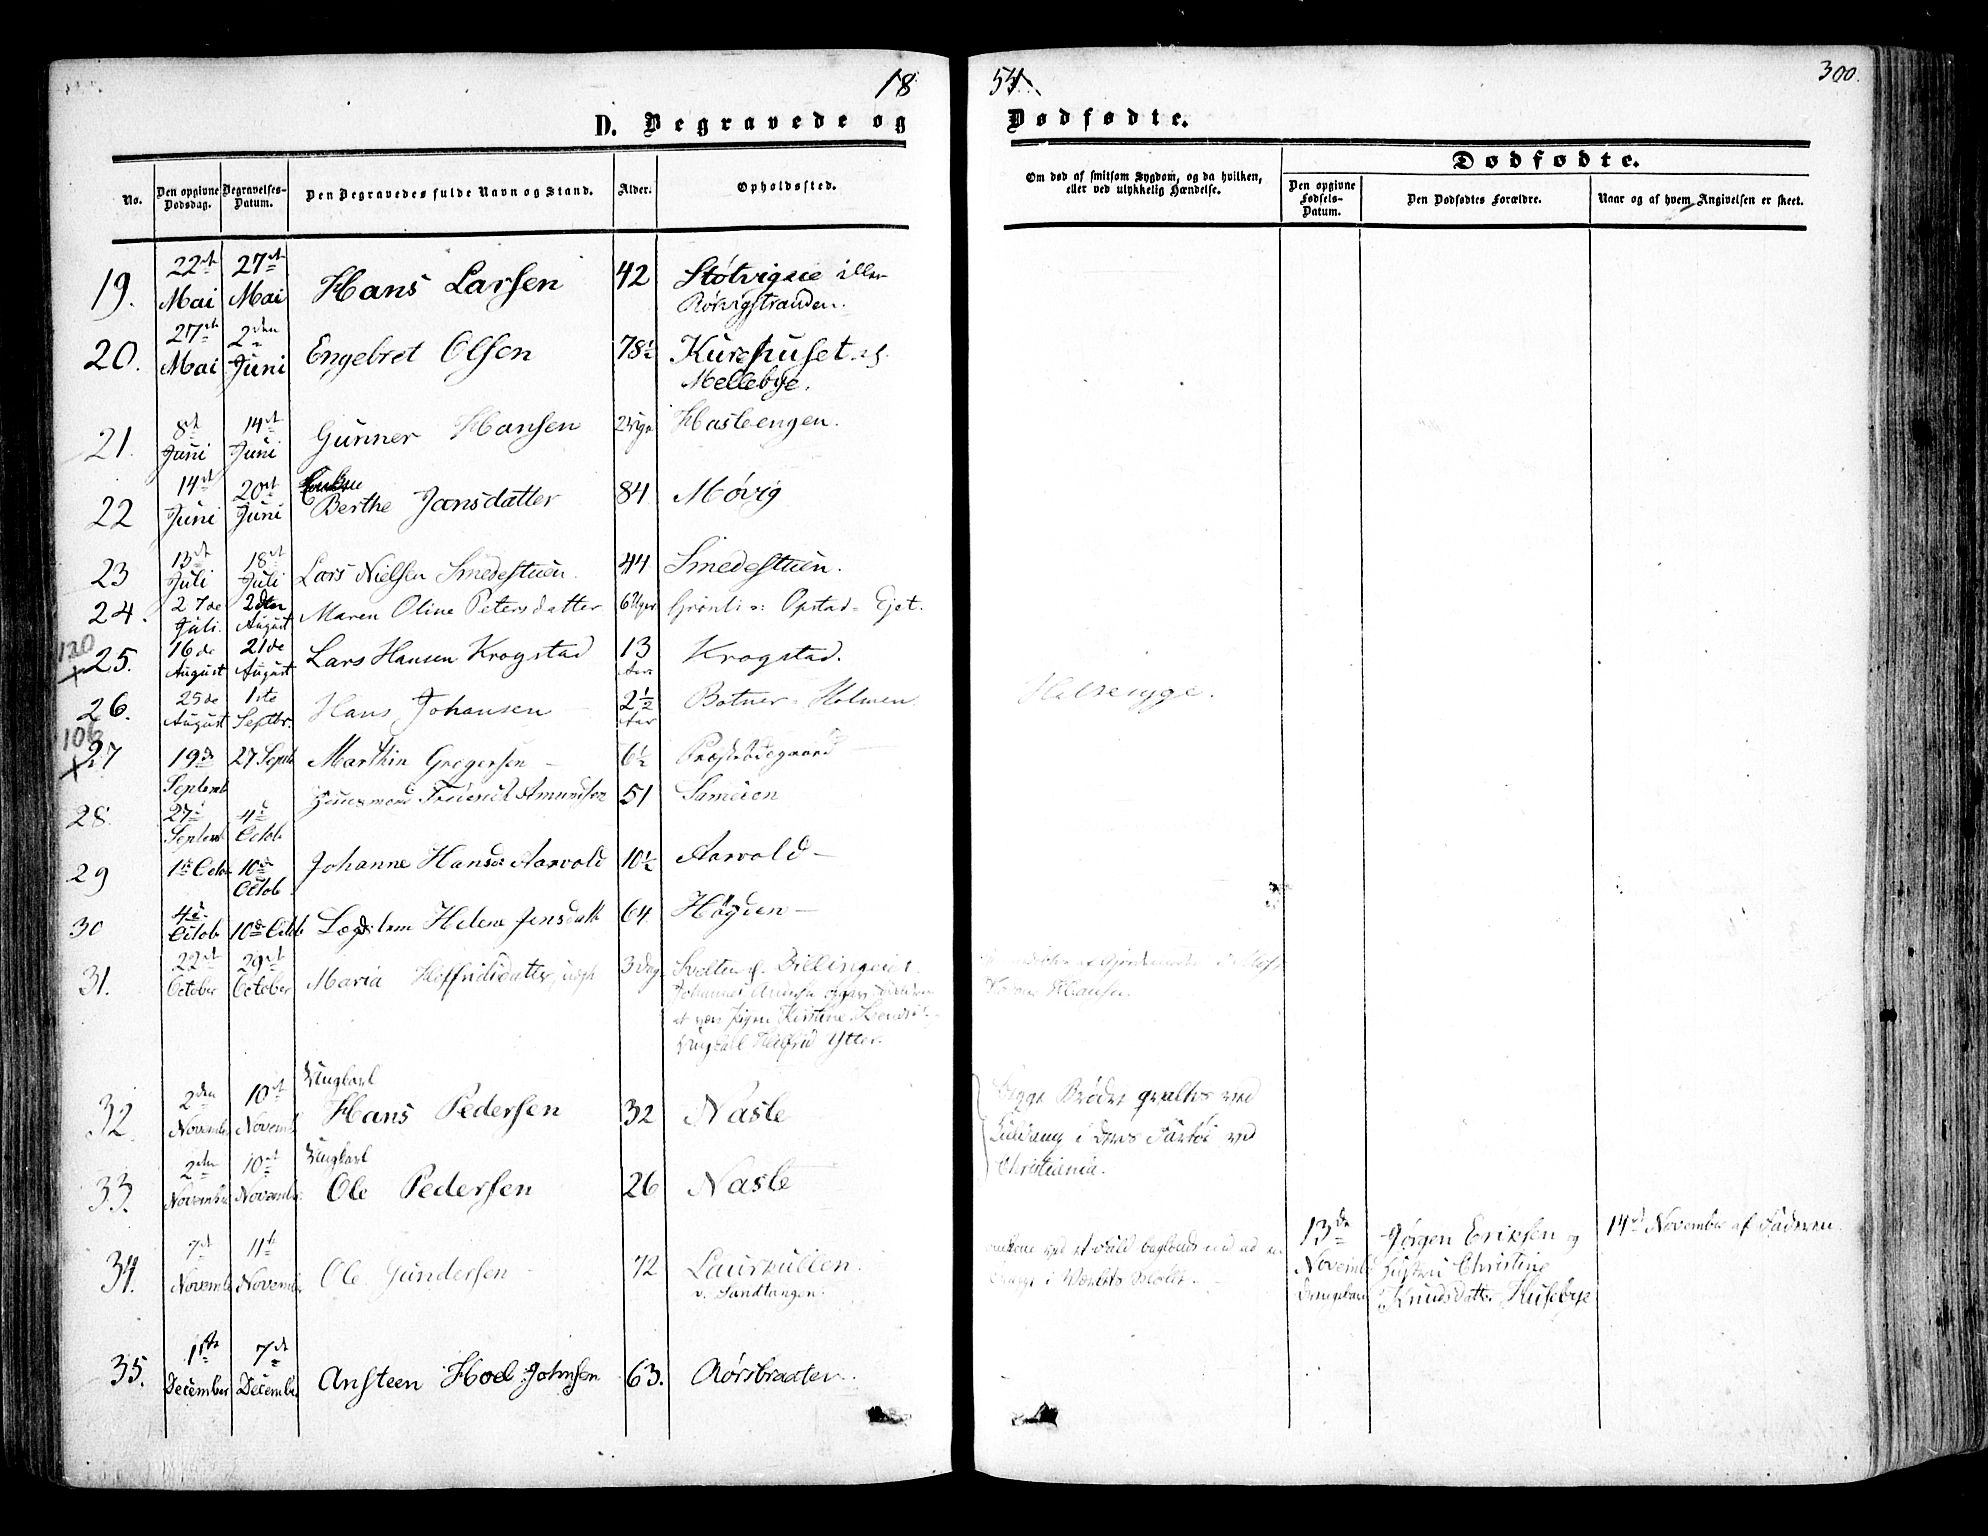 18
54.
300.
D. Begravede og
Dødfødte.
No.
Den opgivne Dødsdag.
Begravelses-Datum.
Den Begravedes fulde Navn og Stand.
Alder.
Opholdssted.
Om død af smitsom Sygdom, og da hvilken, eller ved ulykkelig Hændelse.
Dødfødte.
Den opgivne Fødsels-Datum.
Den Dødfødtes Forældre.
Naar og af hvem Angivelsen er skeet.
19. 22de Mai 27de Mai Hans Larsen 42 Støtvigeie eller
Rørvigstranden.
20. 27de Mai 2den Juni Engebret Olsen 78½ Kureshuset
Mellebye.
21. 8de Juni 14de Juni Gunner Hansen Hasleengen.
22 14de Juni 20de Juni Enken
Berthe Jansdatter 84 Møvig
23 13de Juli 18de Juli Lars Nielsen Smedestuen. 44 Smedestuen.
24. 27de Juli. 2den August Maren Oline Petersdatter 6 Uger Grønli Opstad Ejet.
120
25. 16de August 21de August Lars Hansen Krogstad 13 Aar Krogstad.
26. 25de August 1ste Septbr. Hans Johansen 2½ Aar Botner Holmen Halssyge.
106
27 19de Septemb 27 Septb Marthin Gregersen 6½ Præstødegaard
28. 27de Septemb 4de Octob Frederik Amundsen 51
29 1ste Octob 10de Octob Johanne Hansd. Aarvold 10½ Aarvold
30 4de Octob 10de Octob Helene Jensdatt 64 Høyden
31. 22de October 29de October Maria 3 Dag Dillingeiet.
Johannes
Hansen.
at være Pigen Kirstine
Ungkarl Ytter.
Ungkarl
32 2den Novemb 10de Novemb Hans Pedersen 32 Nasle
Begge Brødre qvaltes ved
i deres Fartøi ved
Christiania.
Ungkarl
33. 2den Novembr 10de Novembr Ole Pedersen 26 Nasle
34. 7de Novemb 11te Novemb Ole Gundersen 72 Laurkullen.
v. Sandtangen.
ved et Fald
13de Novemb Jørgen Eriksen og
Hustru Christine
Knudsdatter Husebye
14de November af Faderen.
35. 1ste December 7de Decembr Ansteen Hoel Johnsen 63. Rørsbraaten.